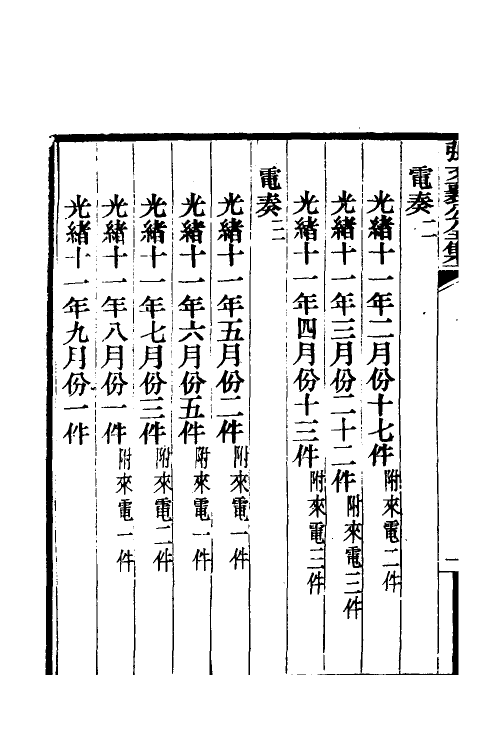 張文襄公全集
電奏二
光緒十一年二月份十七件 附來電二件
光緒十一年三月份二十二件 附來電三件
光緒十一年四月份十三件 附來電三件
電奏三
光緒十一年五月份二件 附來電一件
光緒十一年六月份五件 附來電一件
光緒十一年七月份三件 附來電二件
光緒十一年八月份一件 附來電一件
光緒十一年九月份一件